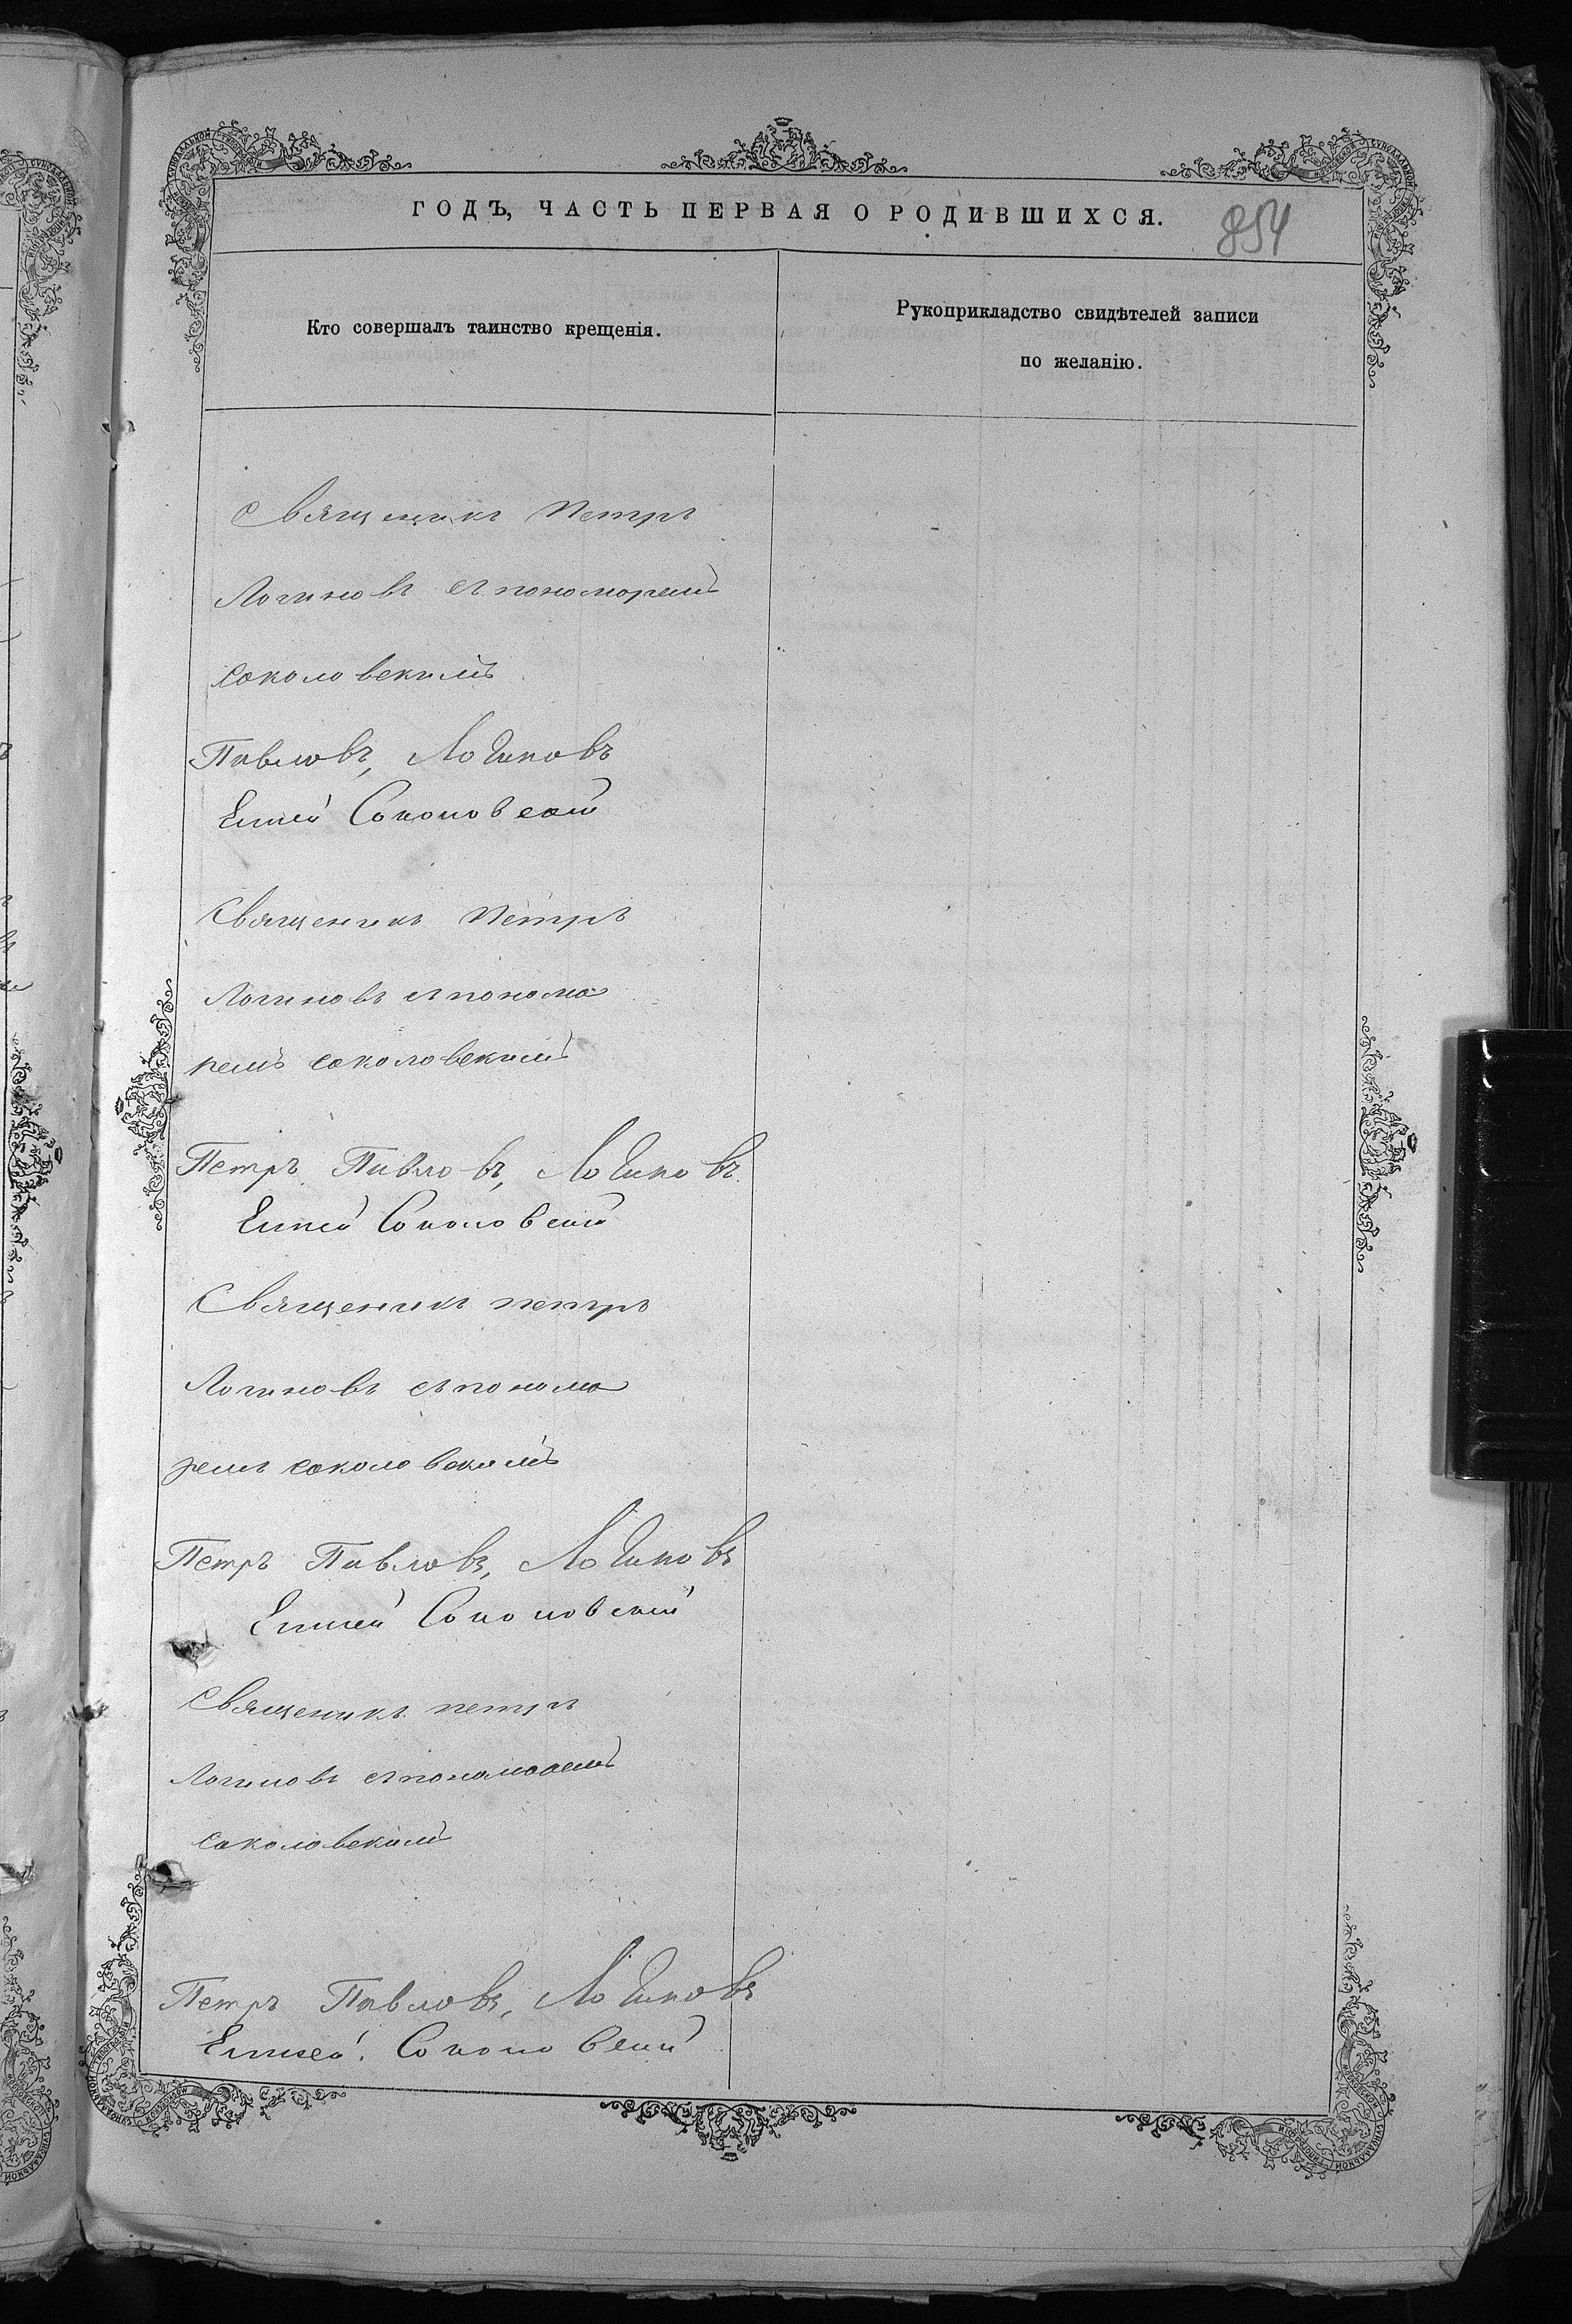 ГОДЪ, ЧАСТЬ ПЕРВАЯ О РОДИВШИХСЯ.
854
Кто совершалъ таинство крещенія.
Рукоприкладство свидѣтелей записи
по желанію.
Священикъ Петръ
Логиновъ съ пономоремъ
соколовскимъ
Павловъ, Логиновъ
Елисей Соколовский
Священикъ Петръ
Логиновъ съ понома
ремъ соколовскимъ
Петръ Павловъ, Логиновъ
Елисей Соколовский
Священикъ петръ
Логиновъ съ понома
ремъ соколовскимъ
Петръ Павловъ, Логиновъ
Елисей Соколовский
Священикъ петръ
Логиновъ съ пономаремъ
соколовскимъ
Петръ Павловъ, Логиновъ
Елисей Соколовский